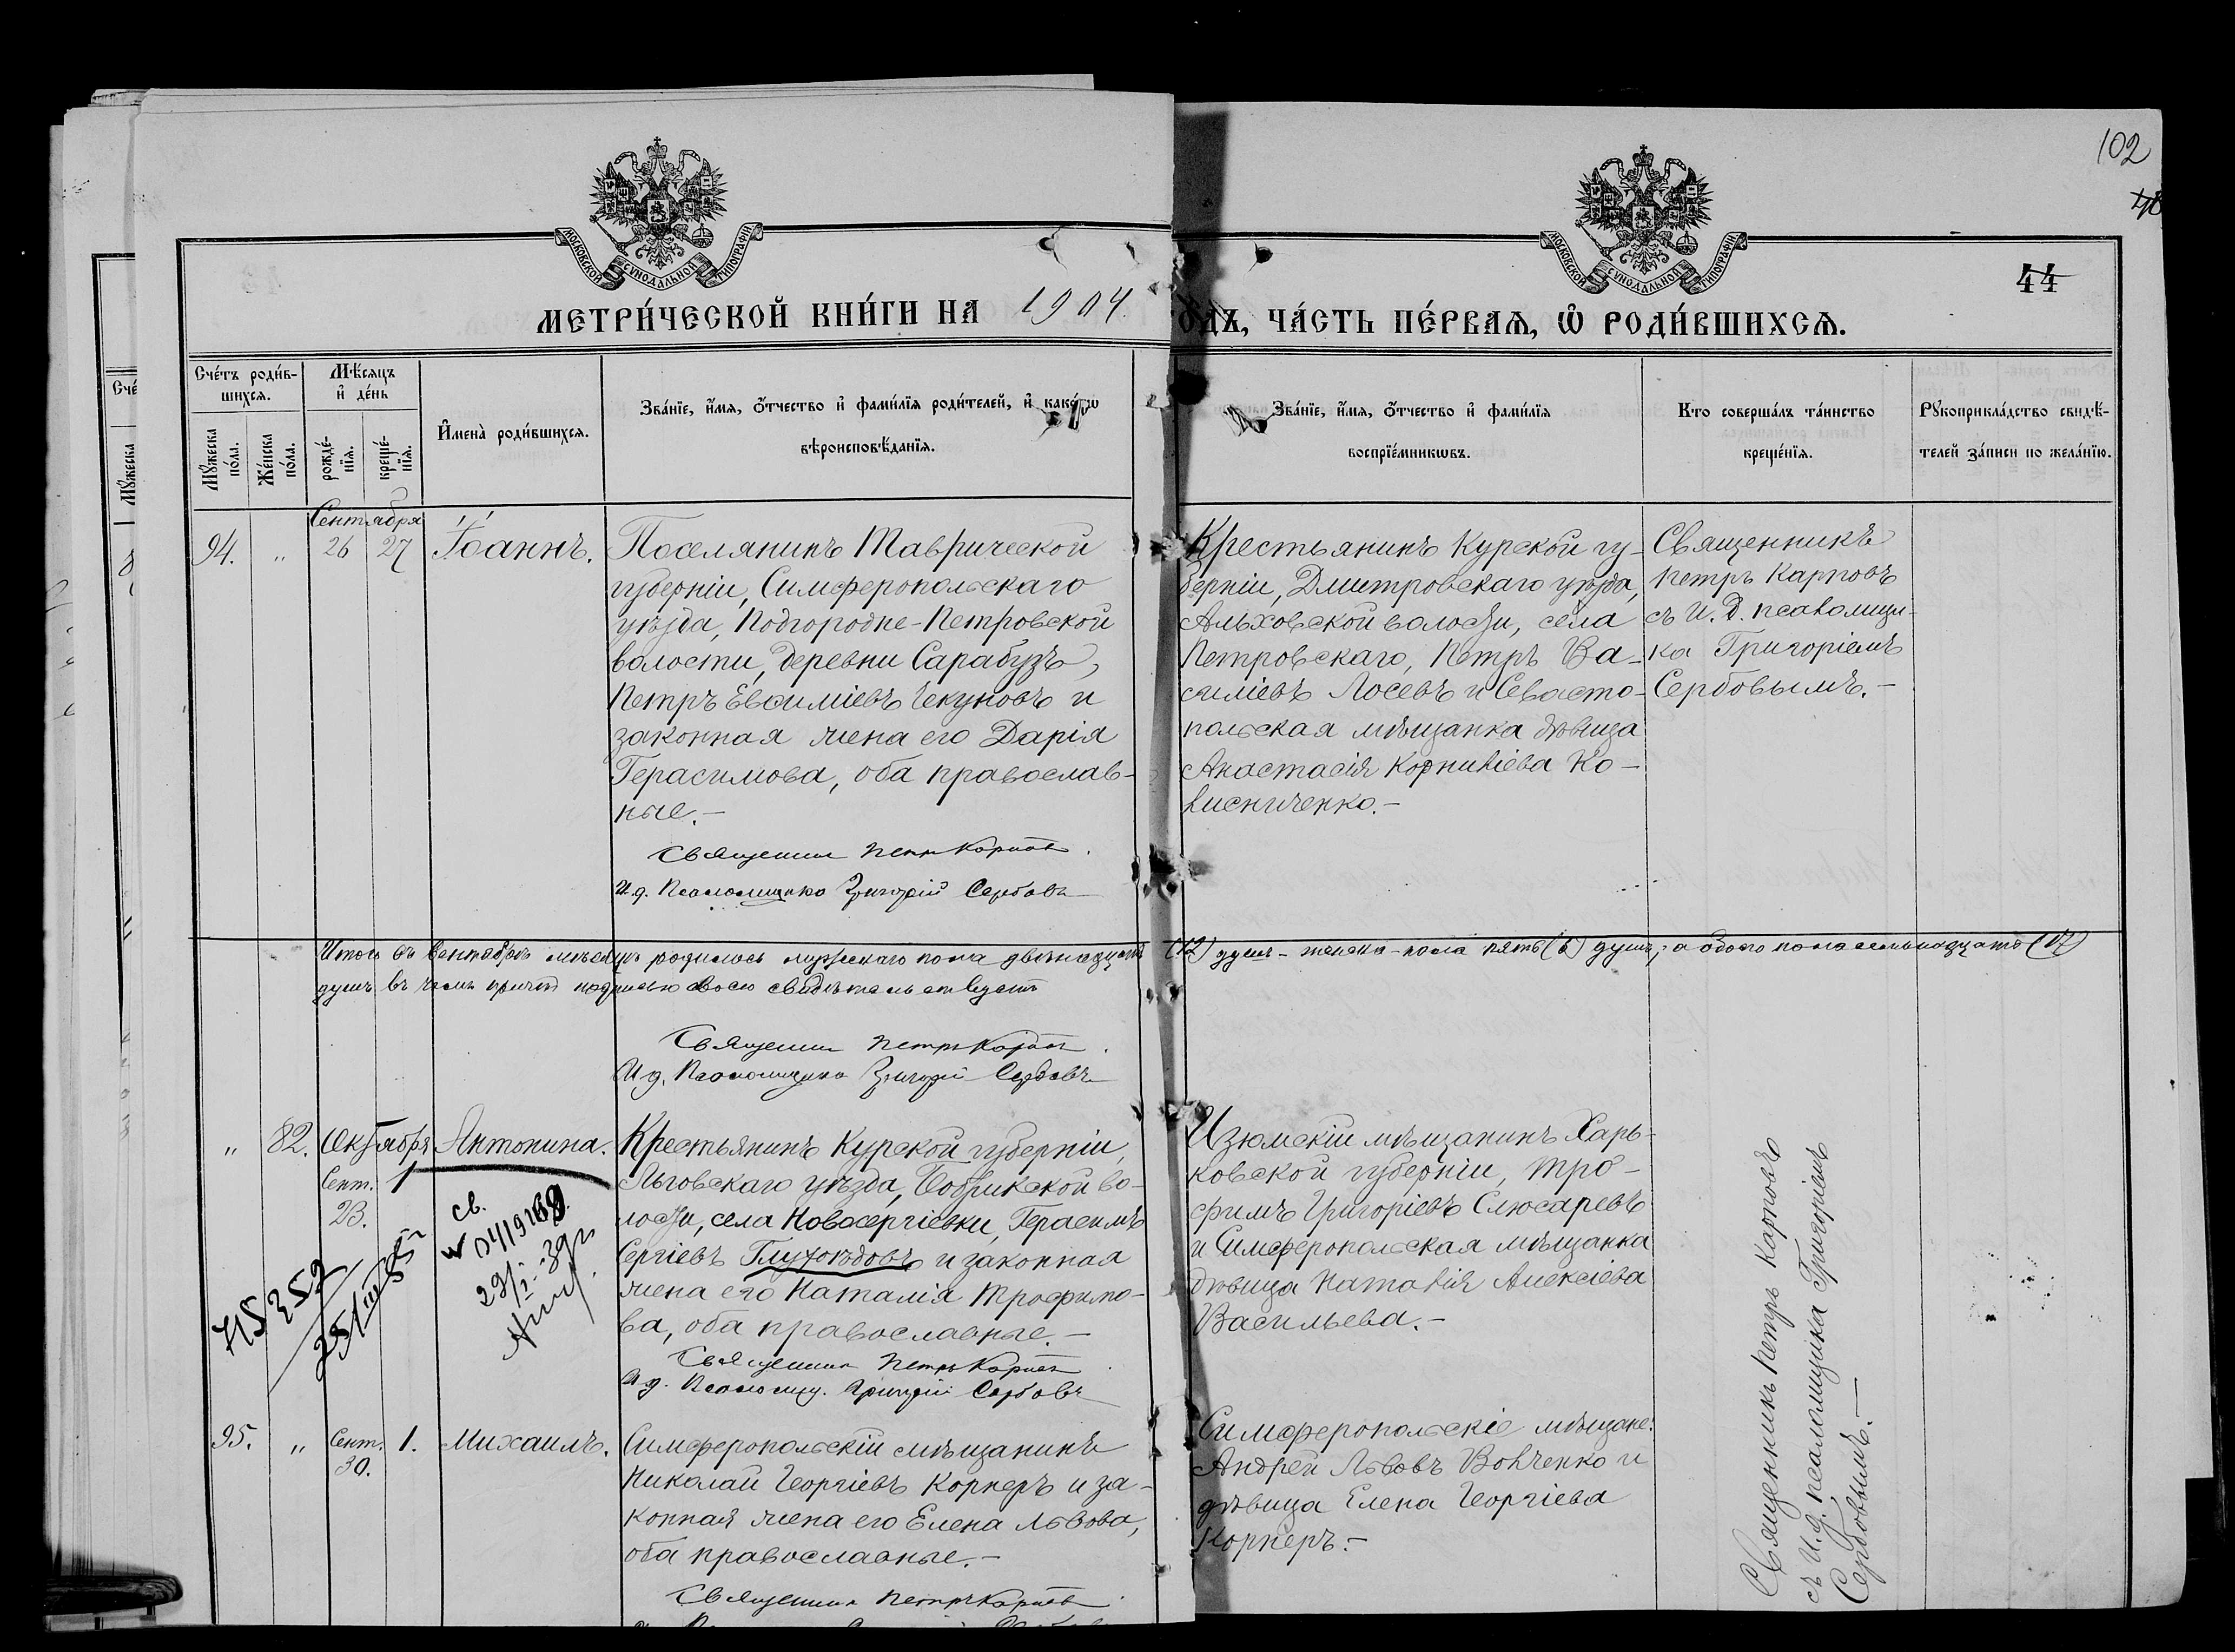 102
44
МОСКОВСКОЙ СѴНОДАЛЬНОЙ ТИПОГРАФІИ
МОСКОВСКОЙ СѴНОДАЛЬНОЙ ТИПОГРАФІИ
МЕТРИ́ЧЕСКОЙ КНИ́ГИ НА 1904 ГОДЪ, ЧА́СТЬ ПЕ́РВАЯ, Ѡ РОДИ́ВШИХСЯ.
Сче́тъ роди́в-
шихся.
Мѣ́сяцъ
и҆ де́нь
Мꙋ́жеска
по́ла.
Же́нска
по́ла.
рожде́-
нїѧ.
креще́-
нїѧ.
И҆мена̀ роди́вшихсѧ.
Зва́нїе, и҆́мѧ, ѻ҆́тчество и҆ фами́лїѧ роди́телей, и҆ како́гѡ
вѣроисповѣ́данїѧ.
Зва́нїе, и҆́мѧ, ѻ҆́тчество и҆ фами́лїѧ
воспрїе́мникѡвъ.
Кто соверша́лъ та́инство
креще́нїѧ.
Рꙋкоприкла́дство свидѣ́-
телей за́писи по жела́нїю.
Сентября
94. „ 26 27 Іоаннъ.
Поселянинъ Таврической
губерніи, Симферопольскаго
уѣзда, Подгородне-Петровской
волости, деревни Сарабузъ,
Петръ Евфиміевъ Чекуновъ и
законная жена его Дарія
Герасимова, оба православ-
ные.-
Священникъ Петръ Карповъ.
И.д. Псаломщика Григорій Сербовъ
Крестьянинъ Курской гу-
берніи, Дмитровскаго уѣзда,
Альховской волости, села
Петровскаго, Петръ Ва-
силіевъ Лосевъ и Севасто-
польская мѣщанка дѣвица
Анастасія Корниліева Ко-
лисниченко.-
Священникъ
Петръ Карповъ
съ И.Д. псаломщи-
ка Григоріемъ
Сербовымъ.-
Итого въ Сентябрѣ мѣсяцѣ родилось мужескаго пола двѣнадцать (12) душъ - женска - пола пять (5) душъ; а обоего пола семьнадцать (17)
душъ въ чемъ причтъ подписью своею свидѣтельствуетъ
Священникъ Петръ Карповъ.
И.д. Псаломщика Григорій Сербовъ
„ 82. Октября
Сент.
23.
1
Антонина.
Крестьянинъ Курской губерніи,
Льговскаго уѣзда, Бобрикской во-
лости, села Новосергіевки, Герасимъ
Сергіевъ Глуховѣдовъ и законная
жена его Наталія Трофимо-
ва, оба православные.-
Священникъ Петръ Карповъ.
И.д. Псаломщ. Григорій Сербовъ
Изюмскій мѣщанинъ Харь-
ковской губерніи, Тро-
фимъ Григоріевъ Слюсаревъ
и Симферопольская мѣщанка
дѣвица Наталія Алексіева
Васильева.-
св.
95. „ Сент.
30.
1. Михаилъ.
Симферопольскій мѣщанинъ
Николай Георгіевъ Корнеръ и за-
конная жена его Елена Львова,
оба православные.-
Священникъ Петръ Карповъ.
Симферопольскіе мѣщане:
Андрей Львовъ Волченко и
дѣвица Елена Георгіева
Корнеръ.-
Священникъ Петръ Карповъ
съ И.д. псаломщика Григоріемъ
Сербовымъ.-